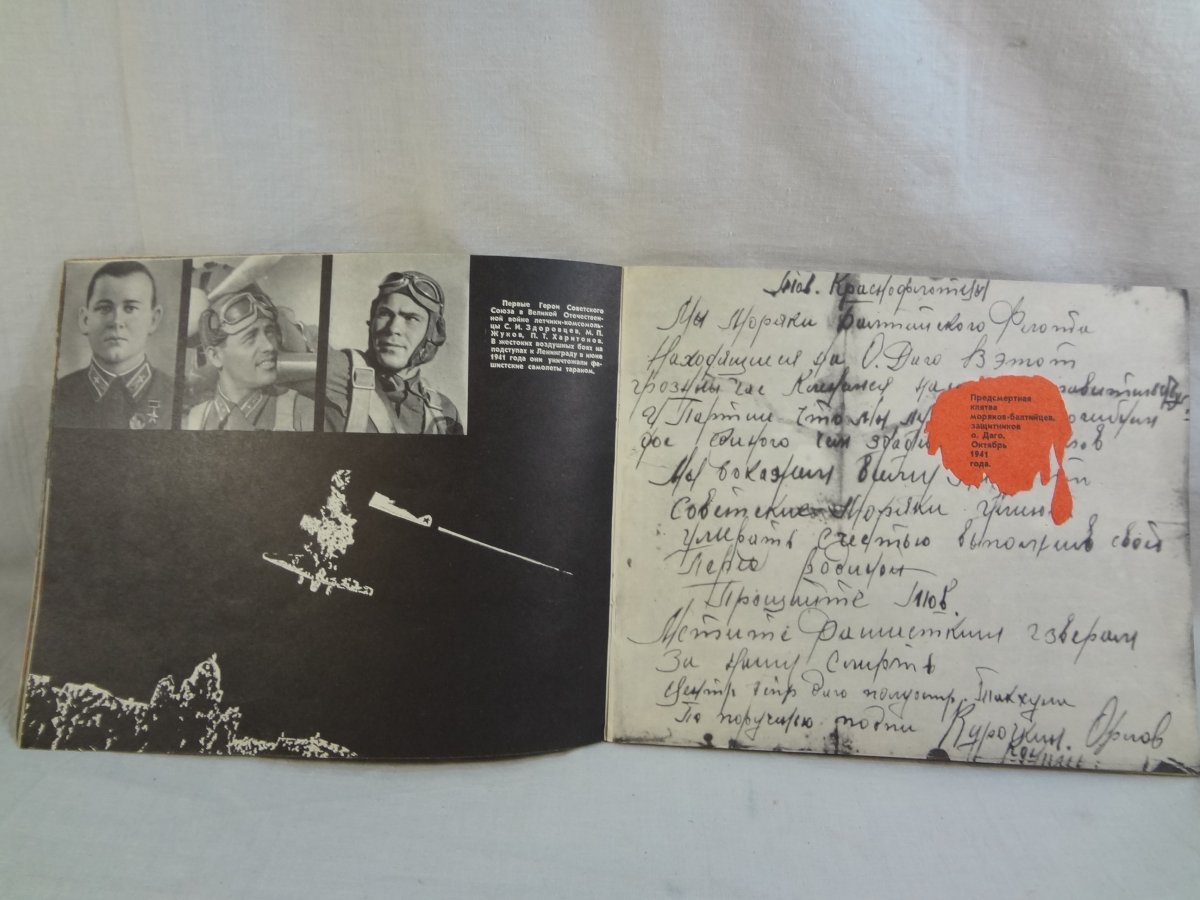 Первые Герои Советского
Союза в Великой Отечествен-
ной войне летчики-комсомоль-
цы С. И. Здоровцев, М. П.
Жуков, П. Т. Харитонов.
В жестоких воздушных боях на
подступах к Ленинграду в июне
1941 года они уничтожали фа-
шистские самолеты тараном.
Тов. Краснофлотцы
Мы Моряки Балтийского Флота
Находящиеся на О. Даго В этот
грозный час Клянемся
и Партии что мы
до единого чем
Мы докажем
Советские Моряки
умирать с честью выполнив свой
родиной
Прощайте Тов.
Мстите Фашистким зверям
За нашу Смерть
По поручению подпи Курочкин. Орлов
Предсмертная
клятва
моряков-балтийцев,
защитников
о. Даго.
Октябрь
1941
года.